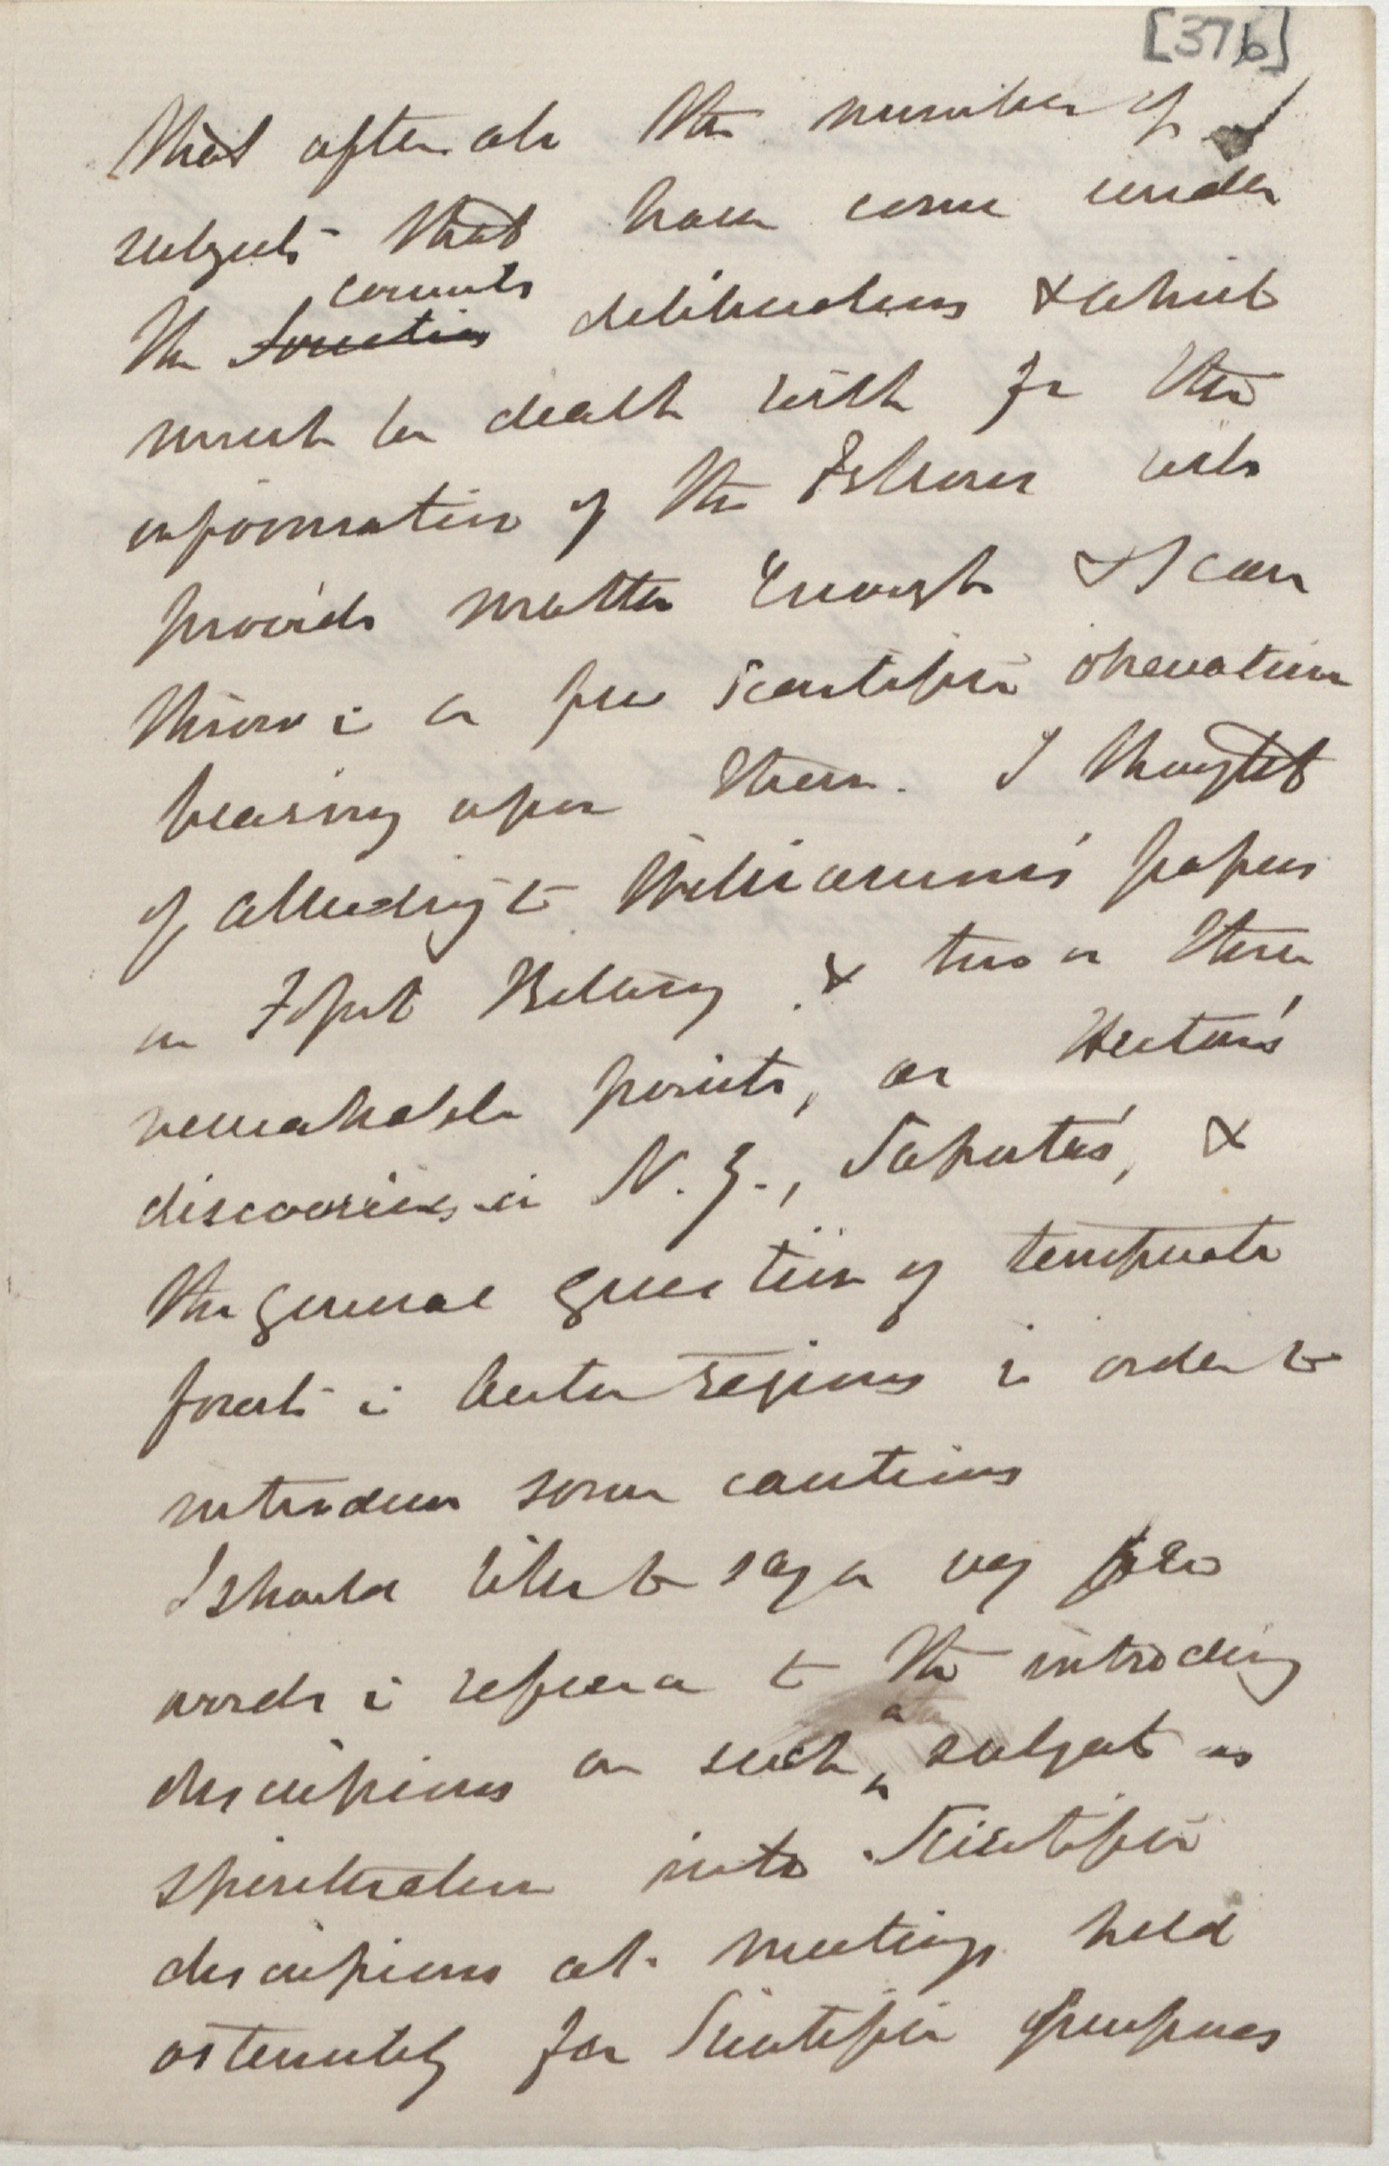 [37b]
that after all the number of
subjects that have come under
the councils ~~Societies~~ deliberations & which
must be dealt with for the
information of the Fellows will
provide matter enough & I can
throw in a few scientific observations
bearing upon them. I thought
of alluding to Williamson's papers
on Fossil Botany & two or three
remarkable points, as Hector's
discoveries in N. Z., Saporta's, &
the general question of temperate
forests in Arctic regions in order to
introduce some cautions
I should like to say a very few
words in reference to the introducing
discussions on such a subject as
spiritualism into Scientific
discussions at meetings held
ostensibly for Scientific purposes